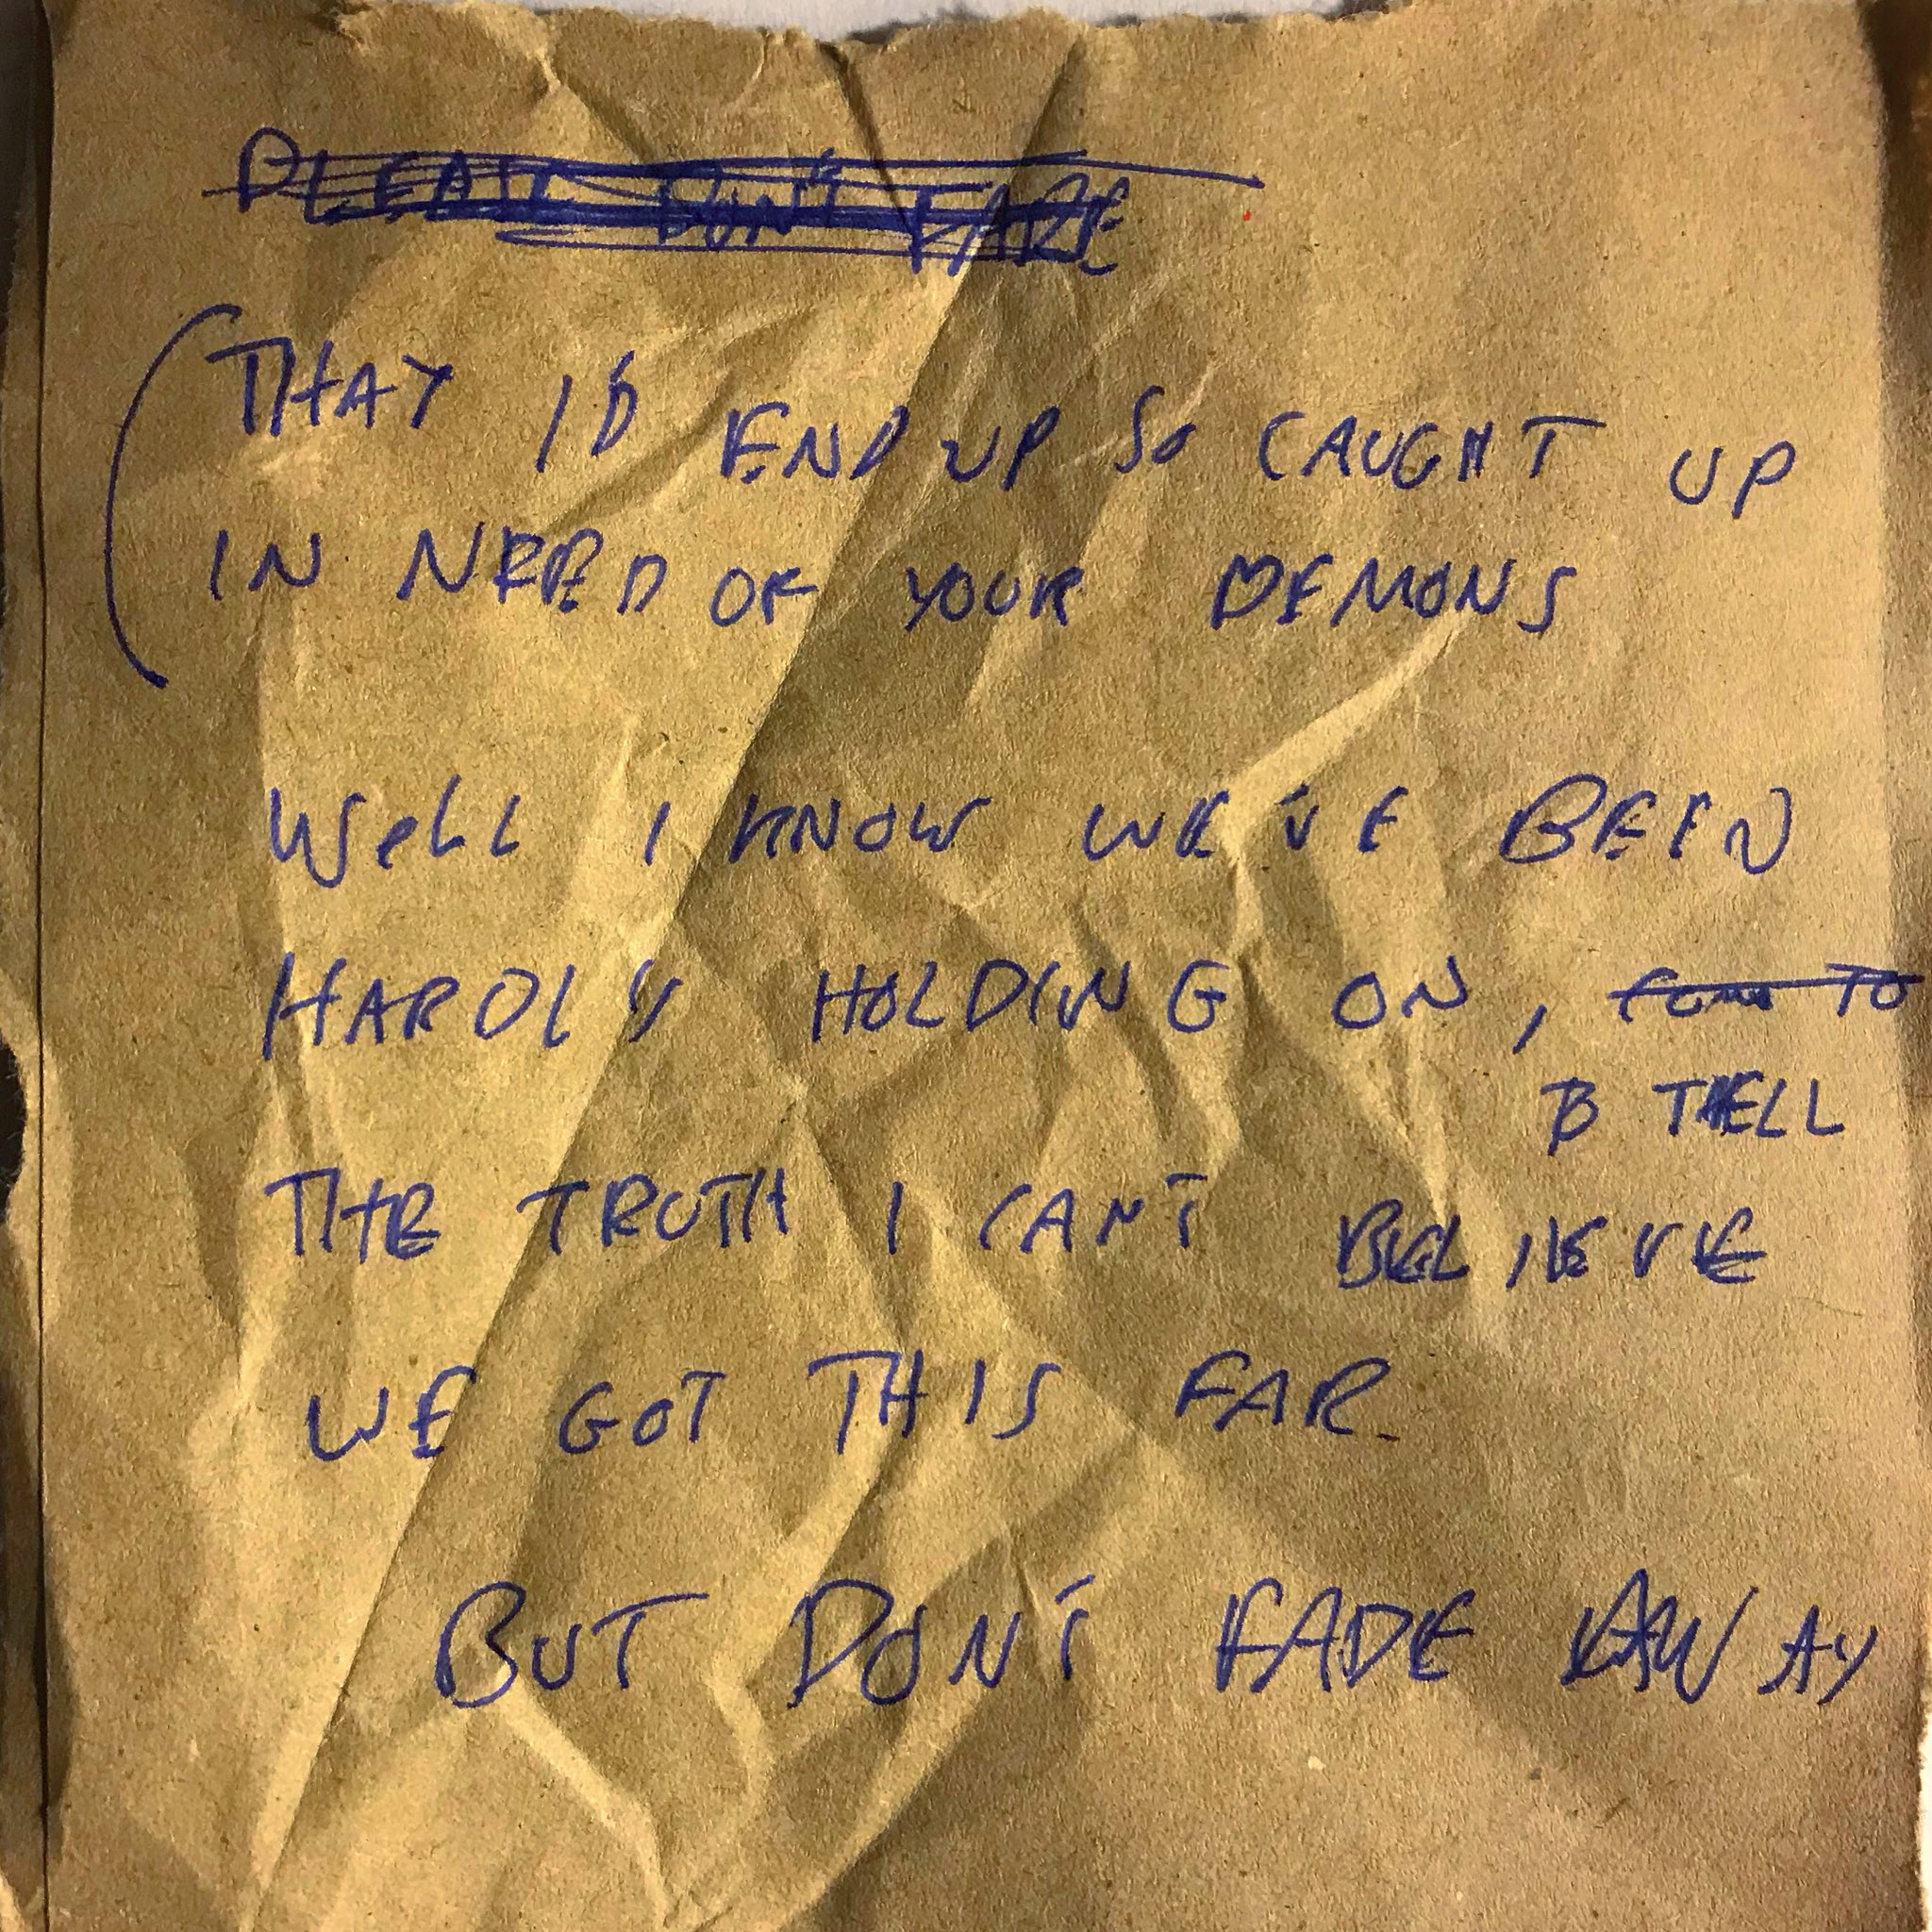 PLEASE DON'T FADE
(THAT I'D END UP SO CAUGHT UP
IN NEED OF YOUR DEMONS
WELL I KNOW WE'VE BEEN
HARDLY HOLDING ON, TO
TO TELL
THE TRUTH I CAN'T BELIEVE
WE GOT THIS FAR.
BUT DON'T FADE AWAY